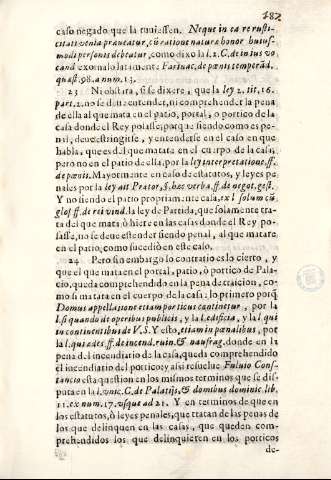 187
caso negado que la tuuiessen. Neque in ea re rusti-
citati venia præueatur, cũ ratione natura honor huius-
modi personis debeatur, como dixo la l. 2. C. de in ius vo
cand. exornalo latamente Farinac. de pœnis temperãd.
quæst. 98. a num. 13.
23 Ni obstara, si se dixere, que la ley 2. tit. 16.
part. 2. no se deue entender, ni comprehender la pena
de ella al que mata en el patio, portal, o portico de la
casa donde el Rey posasse, porque siendo como es pe-
nal, deue restringirse, y entenderse en el caso en que
habla, que es del que matare en el cuerpo de la casa,
pero no en el patio de ella, por la ley interpretatione, ff.
de pœnis. Mayormente en caso de estatutos, y leyes pe
nales por la ley ait Prætor, §. hæc verba. ff. de negot. gest.
Y no siendo el patio propriamente casa, ex l. solum cũ
glos. ff. de rei vind. la ley de Partida, que solamente tra-
ta del que mata, ò hiere en las casas donde el Rey po-
sasse, no se deue estender siendo penal, al que matare
en el patio, como sucediò en este caso.
24 Pero sin embargo lo contrario es lo cierto, y
que el que mata en el portal, patio, ò portico de Pala-
cio, queda comprehendido en la pena de traicion, co-
mo si matara en el cuerpo de la casa: lo primero porq̃
Domus appellatione etiam porticus continetur, por la
l. si quando de operibus publicis, y la l. ædificia, y la l. qui
in continentibus de V. S. Y esto, etiam in pœnalibus, por
la l. qui ædes. ff. de incend. ruin. & naufrag. donde en la
pena del incendiario de la casa, queda comprehendido
el incendiario del portico: y assi resuelue Fuluio Cons-
tancio esta question en los mismos terminos que se dis-
puta en la l. vnic. C. de Palatijs, & domibus dominic. lib.
11. ex num. 17. vsque ad 21. Y en terminos de que en
los estatutos, ò leyes penales, que tratan de las penas de
los que delinquen en las casas, que queden com-
prehendidos los que delinquieren en los porticos
de-